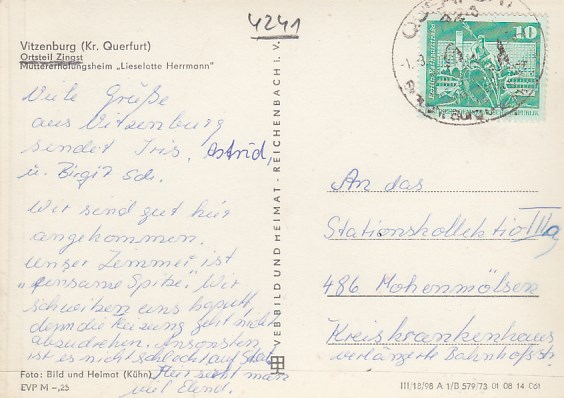 4241
Vitzenburg (Kr. Querfurt)
Ortsteil Zingst
Müttererholungsheim „Lieselotte Herrmann"
Viele Grüße
aus Vitzenburg
sendet Iris, Astrid,
u. Birgit Sch.
Wir sind gut hier
angekommen.
Unser Zimmer ist
"einsame Spitze". Wir
schwitzen uns kaputt,
denn die Heizung geht nicht
abzudrehen. Ansonsten
ist es nicht schlecht auf
Hier sieht man
viel Elend.
Foto: Bild und Heimat (Kühn)
EVP M –,25
VEB BILD UND HEIMAT · REICHENBACH I. V.
10
An das
Stationskollektiv IIIa
486 Hohenmölsen
Kreiskrankenhaus
verlängerte Bahnhofstr.
III/18/98 A 1/B 579/73 01 08 14 061